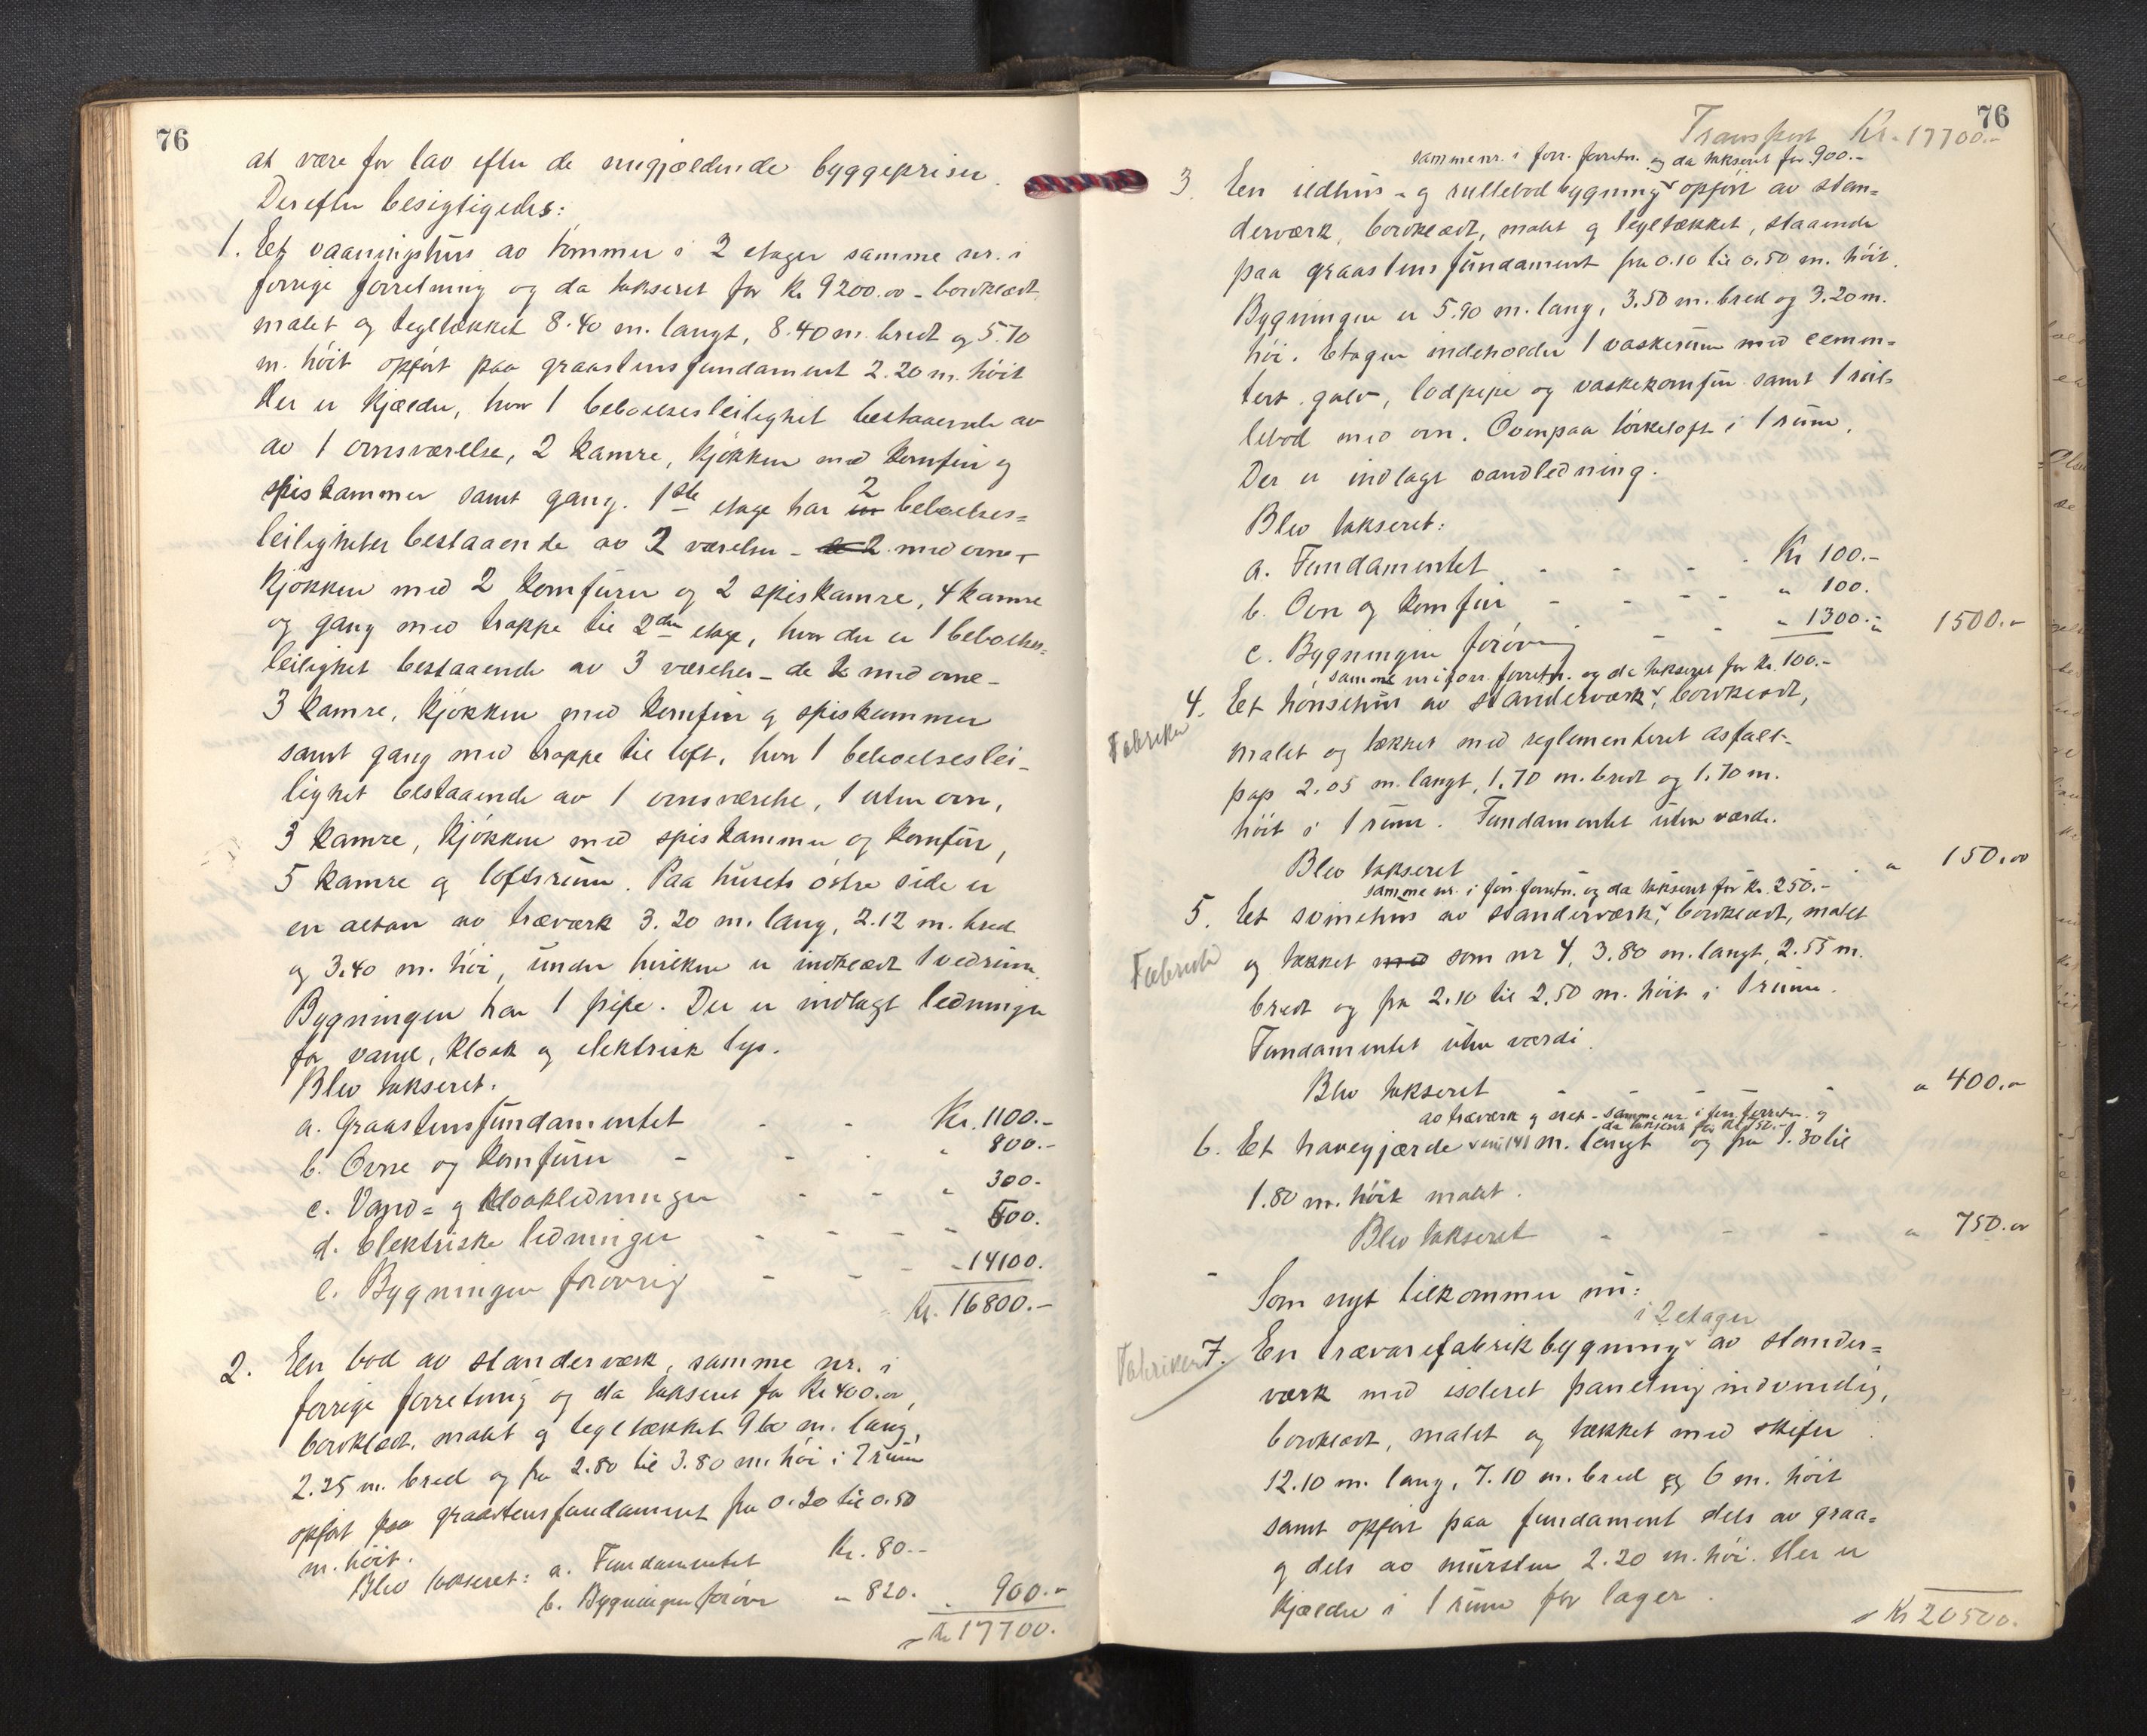 76
at være for lav efter de nugjældende byggepriser.
Derefter besigtigedes:
1. Et vaaningshus av tømmer i 2 etager samme nr. i
forrige forretning og da takseret for Kr 9200.00 - bordklædt,
malet og tegltækket 8.40 m. langt, 8.40 m. bredt og 5.70
m. höit opfört paa graastensfundament 2.20 m. höit
Her er kjælder, hvor 1 beboelsesleilighet bestaaende av
av 1 ovnsværelse, 2 kamre, kjökken med komfur og
spiskammer samt gang. 1ste etage har en 2 beboelses=
leiligheter bestaaende av 2 værelser - de 2 med ovne -
kjökken med 2 komfurer og 2 spiskamre, 4 kamre
og gang med trappe til 2den etage, hvor der er 1 beboelses=
leilighet bestaaende av 3 værelser - de 2 med ovne -
3 kamre, kjökken med komfur og spiskammer
samt gang med trappe til loft, hvor 1 beboelseslei-
lighet bestaaende av 1 ovnsværelse, 1 uten ovn,
3 kamre, kjökken med spiskammer og komfur,
5 kamre og loftsrum. Paa husets östre side er
en altan av træværk 3.20 m. lang, 2.12 m. bred
og 3.40 m. höi, under hvilken er indklædt 1 vedrum.
Bygningen har 1 pipe. Der er indlagt ledninger
for vand, kloak og elektrisk lys.
Blev takseret.
a. Graastensfundamentet - - Kr. 1100.-
b. Ovne og komfurer - - - " 800.-
c. Vand= og kloakledninger - - " 300.-
d. Elektriske ledninger - - - - 500.
e. Bygningen forövrig - - - - 14100.
Kr. 16800.-
2. En bod av standerværk, samme nr. i
forrige forretning og da takseret for Kr 400.00,
bordklædt, malet og tegltækket 9.60 m. lang,
2.25 m. bred og fra 2.80 til 3.80 m. höi i 2 rum
opfört paa graastensfundament fra 0.20 til 0.50
m. höit.
Blev takseret: a. Fundamentet Kr. 80.-
b. Bygningen forövr " 820. " 900.-
Kr 17700.
76
Transport Kr. 17700.-
samme nr. i forr. forretn. og da takseret for 900.-
3. En ildhus- og rullebodbygning opfört av stan=
derværk, bordklædt, malet og tegltækket, staaende
paa graastensfundament fra 0.10 til 0.50 m. höit.
Bygningen er 5.90 m. lang, 3.50 m. bred og 3.20 m.
höi. Etagen indeholder 1 vaskerum med cemen=
tert gulv, lodpipe og vaskekomfur samt 1 rul-
lebod med ovn. Ovenpaa törkeloft i 1 rum.
Der er indlagt vandledning.
Blev takseret:
a. Fundamentet - - - - Kr 100.-
b. Ovn og komfur - - - - " 100.
c. Bygningen forövrig - - " 1300.- " 1500.-
samme nr i forr. forretn. og da takseret for Kr. 100.-
4. Et hönsehus av standerværk, bordklædt,
Fabriken
malet og tækket med reglementeret asfalt-
pap 2.05 m. langt, 1.70 m. bredt og 1.70 m.
höit i 1 rum. Fundamentet uten værdi.
Blev takseret " 150.00
samme nr. i forr. forretn. og da takseret for Kr. 250.-
5. Et svinehus av standerværk, bordklædt, malet
Fabriken
og tækket med som nr 4, 3.80 m. langt, 2.55 m.
bredt og fra 2.10 til 2.50 m. höit i 1 rum.
Fundamentet uten værdi.
Blev takseret - - - - - " 400.-
av træværk og net - samme nr. i forr. forretn. og
da takseret for Kr 150.-
6. Et havegjærde nu 141 m. langt og fra 1.30 til
1.80 m. höit malet.
Blev takseret - - - " 750.00
Som nyt tilkommer nu:
i 2 etager
Fabriken 7. En trævarefabrikbygning av stander=
værk med isoleret paneling indvendig,
bordklædt, malet og tækket med skifer
12.10 m. lang, 7.10 m. bred og 6 m. höit
samt opfört paa fundament dels av graa=
og dels av mursten 2.20 m. höi. Her er
kjælder i 1 rum for lager.
Kr 20500.